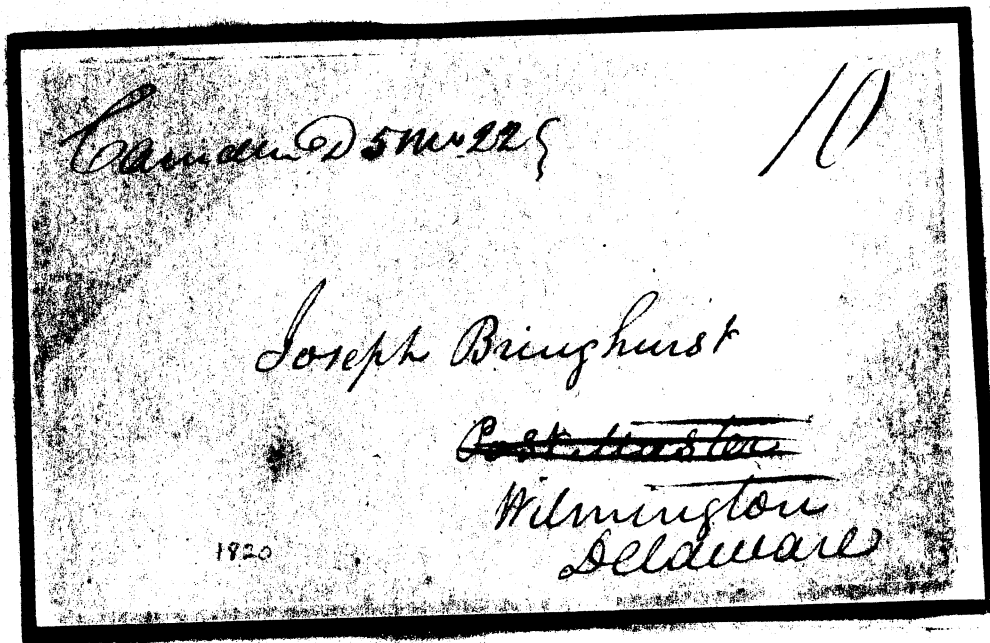 Camden D 5 Mo 22 10
Joseph Bringhurst
Post Master
Wilmington
Delaware
1820